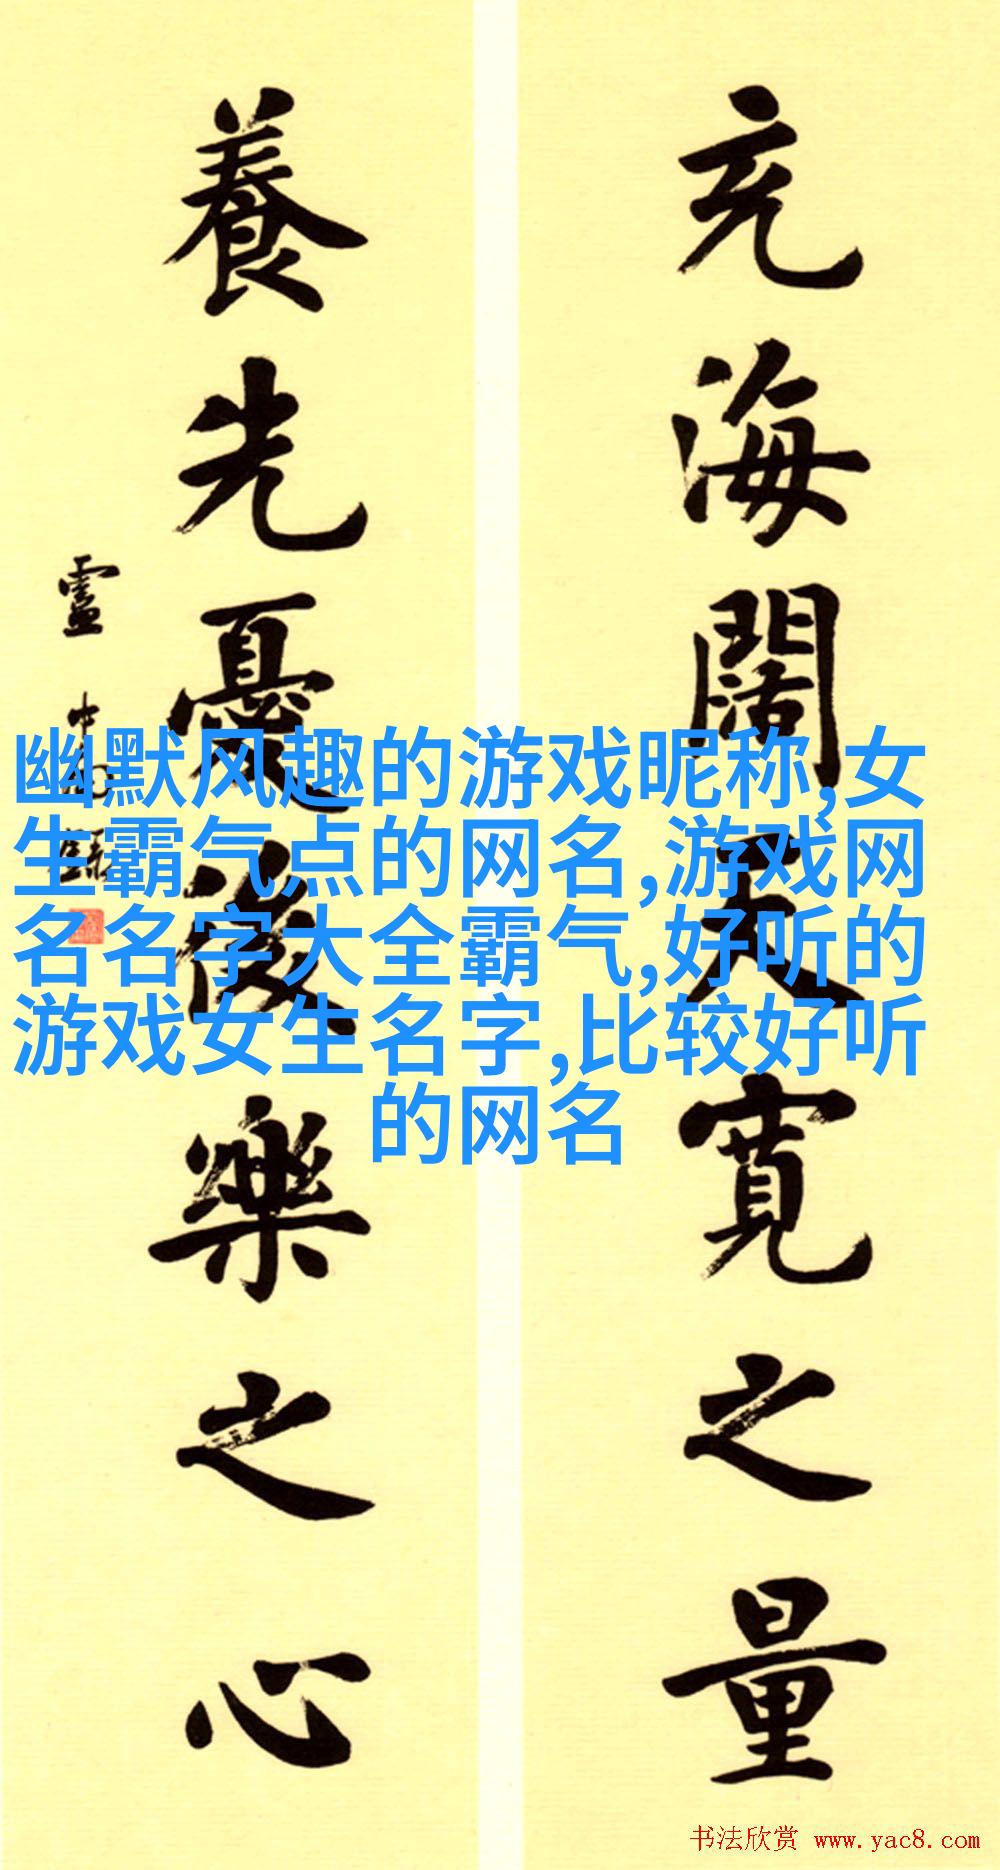 充海闊天寬之量
養先憂後樂之心
幽默风趣的游戏昵称,女
生霸气点的网名,游戏网
名名字大全霸气,好听的
游戏女生名字,比较好听
的网名
书法欣赏 www.yac8.com